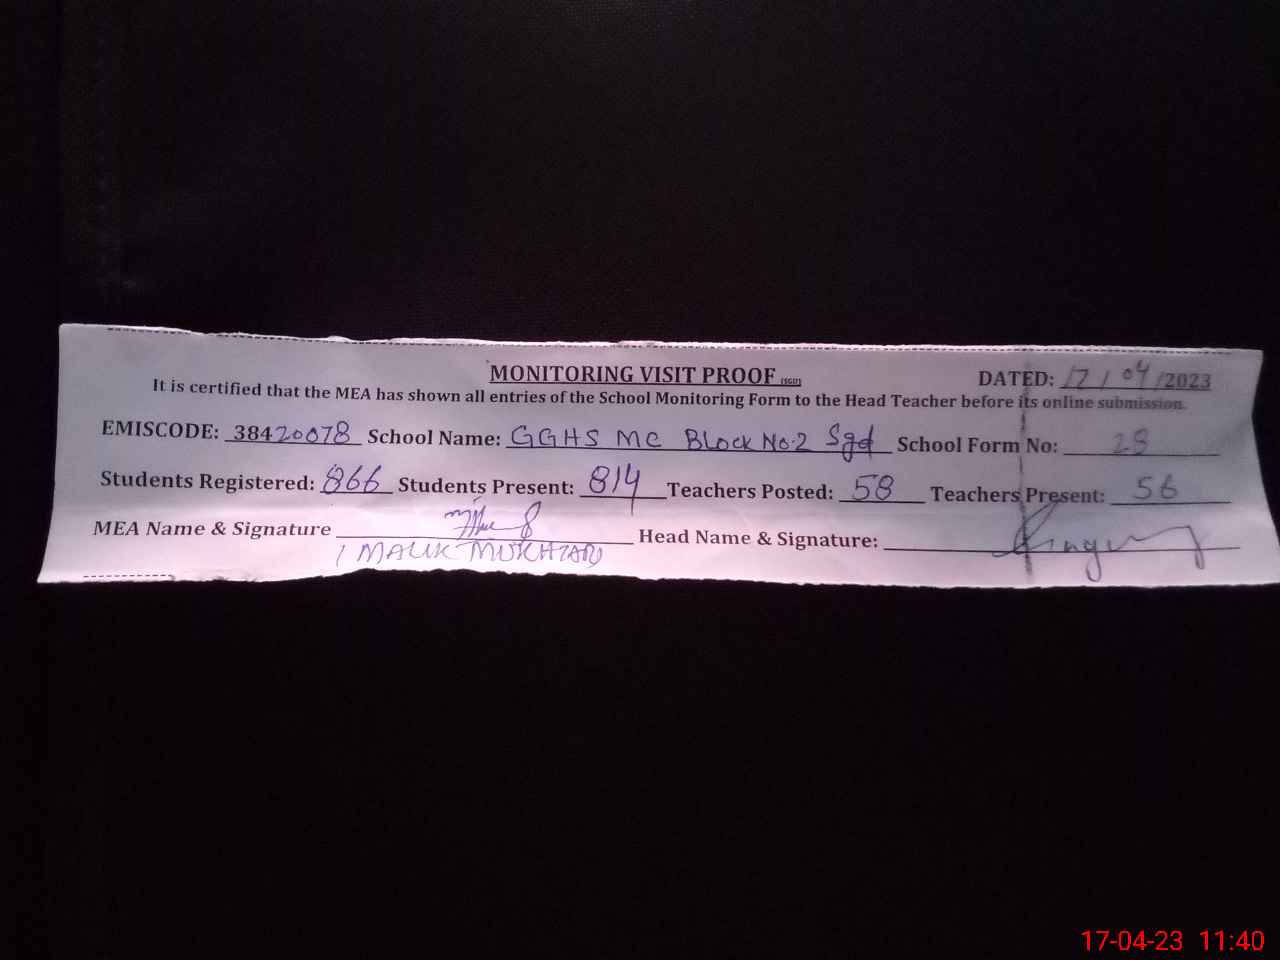 MONITORING VISIT PROOF (SGD) DATED: 17/04/2023
It is certified that the MEA has shown all entries of the School Monitoring Form to the Head Teacher before its online submission.
EMISCODE: 38420078 School Name: GGHS MC Block No.2 Sgd School Form No: 28
Students Registered: 866 Students Present: 814 Teachers Posted: 58 Teachers Present: 56
MEA Name & Signature Head Name & Signature:
MALIK MUKHTAR
17-04-23 11:40